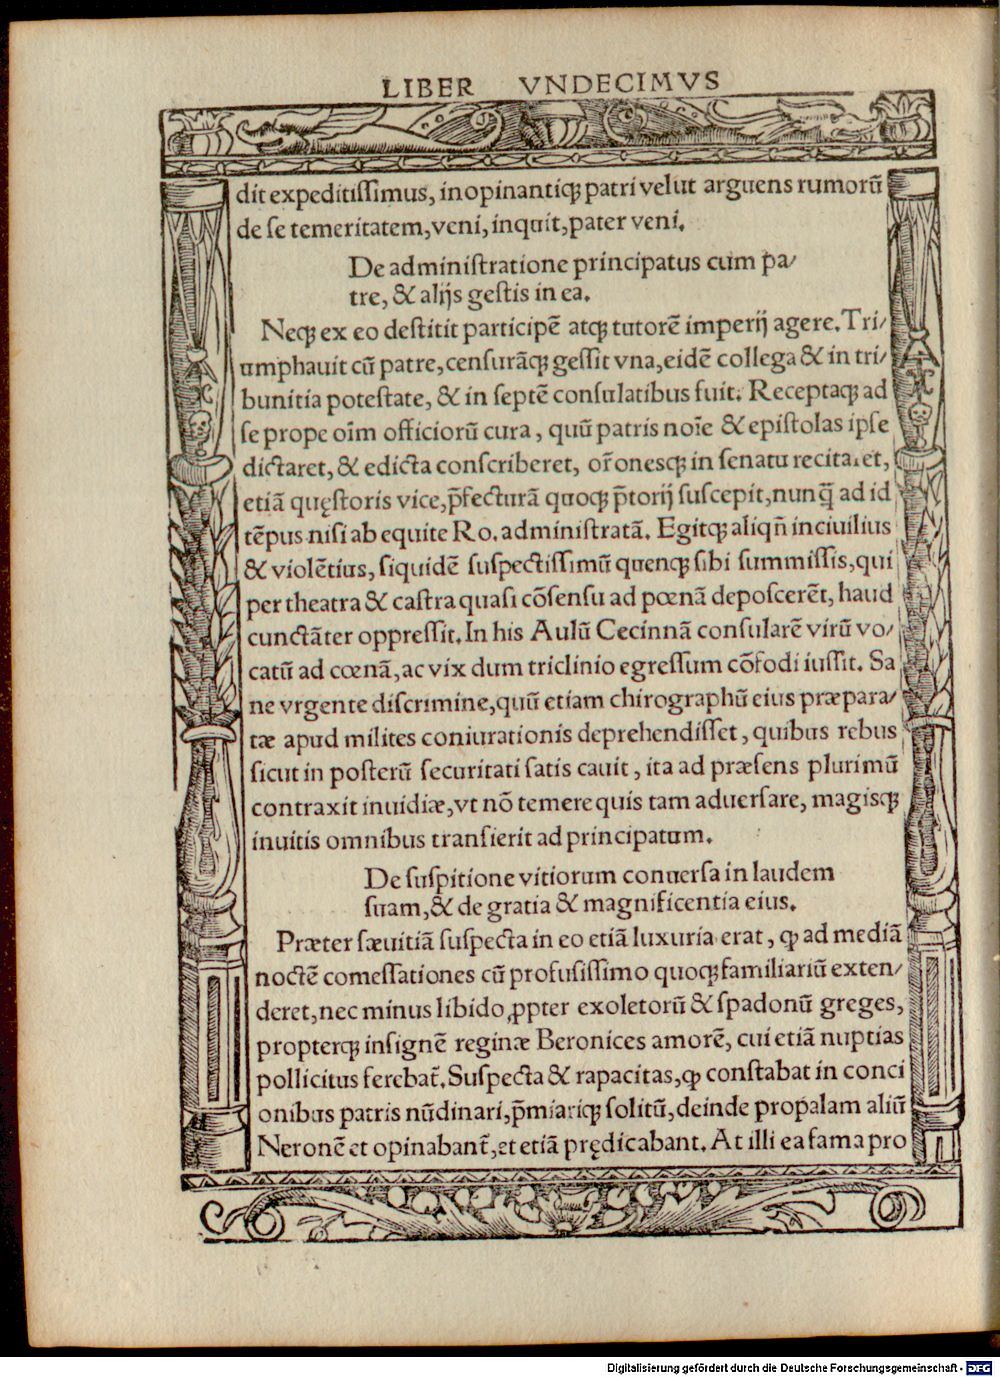 LIBER VNDECIMVS
dit expeditiſſimus, inopinantiqꝫ patri velut arguens rumorū
de ſe temeritatem, veni, inquit, pater veni.
De adminiſtratione principatus cum pa⸗
tre, & alijs geſtis in ea.
Neqꝫ ex eo deſtitit participē atqꝫ tutorē imperij agere. Tri⸗
umphauit cū patre, cenſurāqꝫ geſſit vna, eidē collega & in tri⸗
bunitia poteſtate, & in ſeptē conſulatibus fuit. Receptaqꝫ ad
ſe prope oīm officiorū cura, quū patris noīe & epiſtolas ipſe
dictaret, & edicta conſcriberet, or̄onesqꝫ in ſenatu recitaret,
etiā quęſtoris vice, p̄fecturā quoqꝫ p̄torij ſuscepit, nunq̄ ad id
tēpus niſi ab equite Ro. adminiſtratā. Egitqꝫ aliqn̄ inciuilius
& violētius, ſiquidē ſuſpectiſſimū quenqꝫ ſibi ſummiſſis, qui
per theatra & caſtra quaſi cōſenſu ad pœnā depoſcerēt, haud
cunctāter oppreſſit. In his Aulū Cecinnā conſularē virū vo⸗
catū ad cœnā, ac vix dum triclinio egreſſum cōfodi iuſſit. Sa
ne vrgente diſcrimine, quū etiam chirographū eius præpara⸗
tæ apud milites coniurationis deprehendiſſet, quibus rebus
ſicut in poſterū ſecuritati ſatis cauit, ita ad præſens plurimū
contraxit inuidiæ, vt nō temere quis tam aduerſare, magisqꝫ
inuitis omnibus tranſierit ad principatum.
De ſuſpitione vitiorum conuerſa in laudem
ſuam, & de gratia & magnificentia eius.
Præter ſæuitiā ſuſpecta in eo etiā luxuria erat, ꝙ ad mediā
noctē comeſſationes cū profuſiſſimo quoqꝫ familiariū exten⸗
deret, nec minus libido ꝓpter exoletorū & ſpadonū greges,
propterqꝫ inſignē reginæ Beronices amorē, cui etiā nuptias
pollicitus ferebat̄. Suſpecta & rapacitas, ꝙ conſtabat in conci
onibus patris nūdinari, p̄miariqꝫ ſolitū, deinde propalam aliū
Neronē et opinabant̄, et etiā prędicabant. At illi ea fama pro
Digitalisierung gefördert durch die Deutsche Forschungsgemeinschaft - DFG